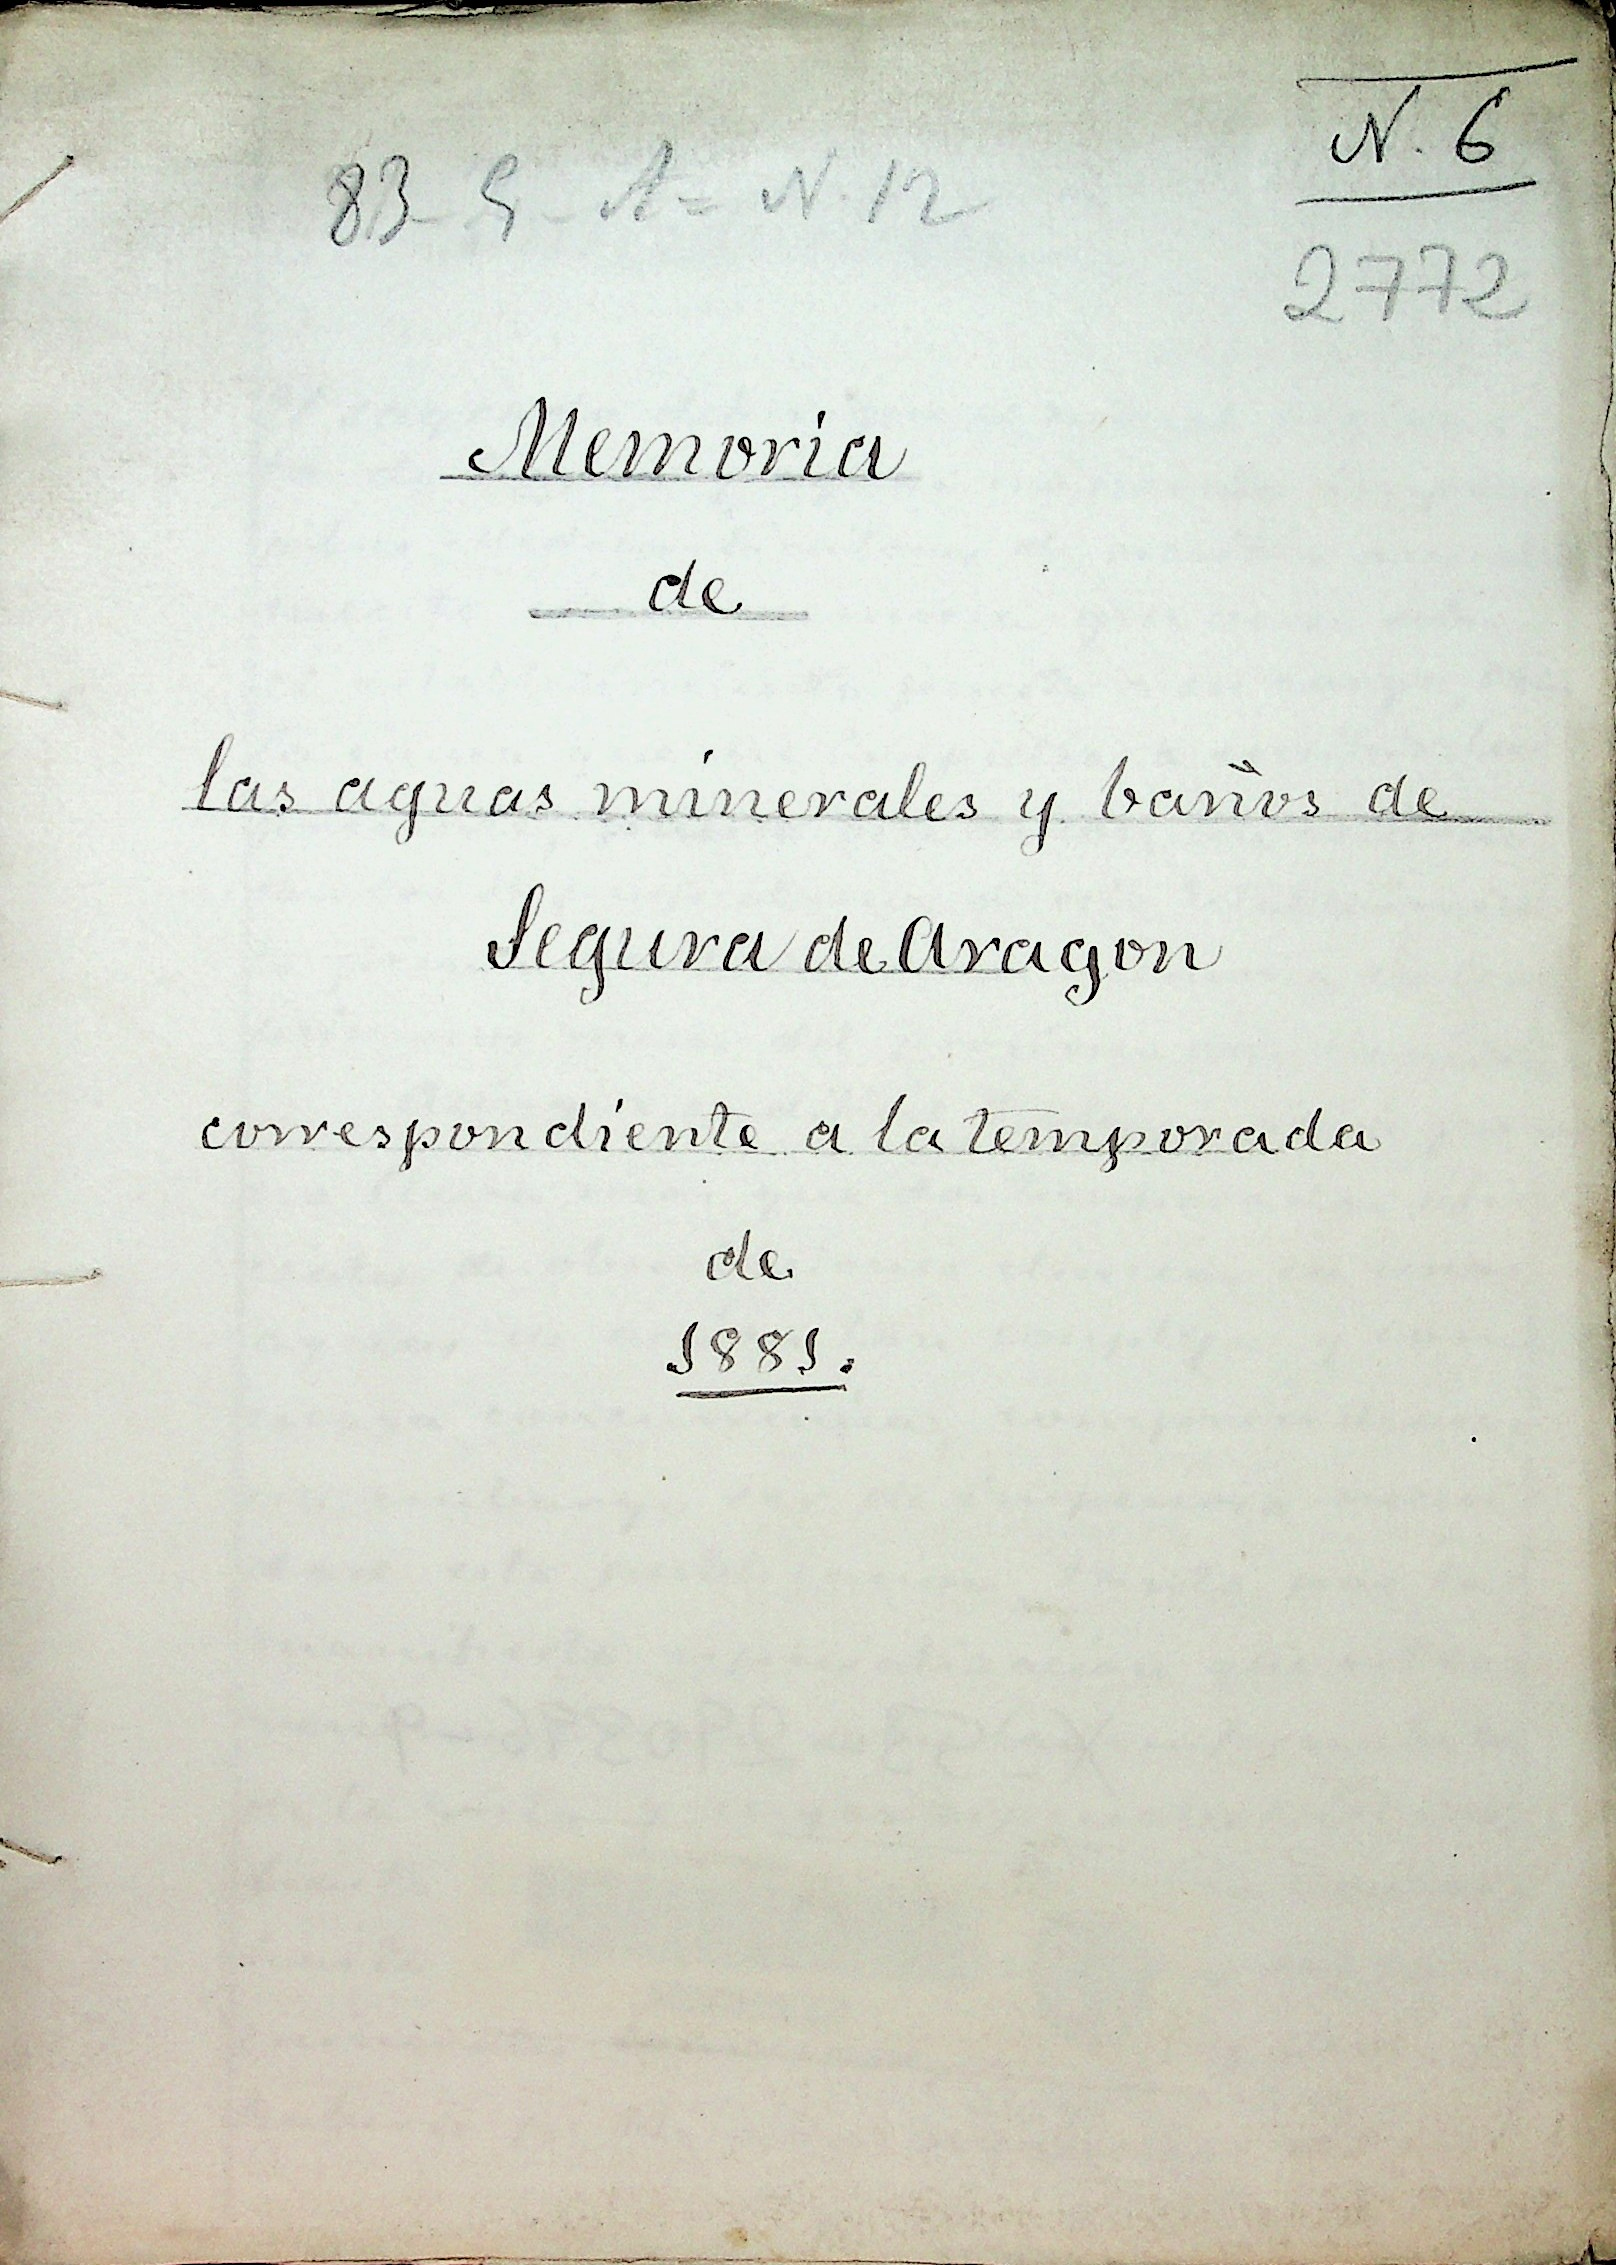 N. 6
83-5-A=N.12
2772
Memoria
de
las aguas minerales y baños de
Segura de Aragon
correspondiente a la temporada
de
1881.